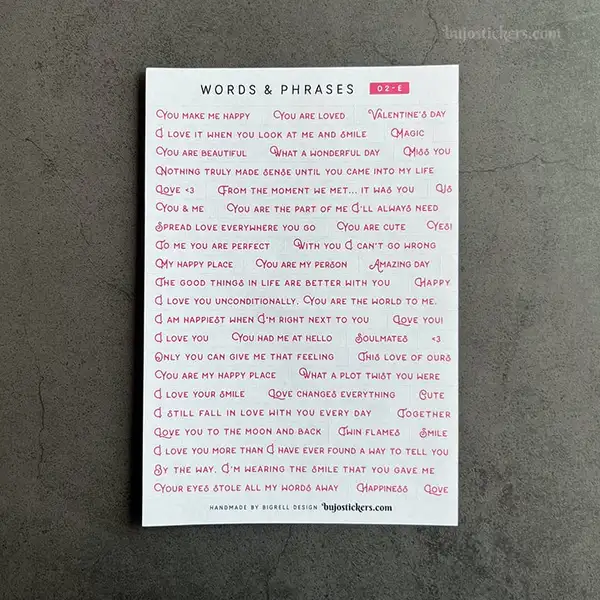 bujostickers.com
WORDS & PHRASES 02-E
YOU MAKE ME HAPPY YOU ARE LOVED VALENTINE'S DAY
I LOVE IT WHEN YOU LOOK AT ME AND SMILE MAGIC
YOU ARE BEAUTIFUL WHAT A WONDERFUL DAY MISS YOU
NOTHING TRULY MADE SENSE UNTIL YOU CAME INTO MY LIFE
LOVE <3 FROM THE MOMENT WE MET... IT WAS YOU US
YOU & ME YOU ARE THE PART OF ME I'LL ALWAYS NEED
SPREAD LOVE EVERYWHERE YOU GO YOU ARE CUTE YES!
TO ME YOU ARE PERFECT WITH YOU I CAN'T GO WRONG
MY HAPPY PLACE YOU ARE MY PERSON AMAZING DAY
THE GOOD THINGS IN LIFE ARE BETTER WITH YOU HAPPY
I LOVE YOU UNCONDITIONALLY. YOU ARE THE WORLD TO ME.
I AM HAPPIEST WHEN I'M RIGHT NEXT TO YOU LOVE YOU!
I LOVE YOU YOU HAD ME AT HELLO SOULMATES <3
ONLY YOU CAN GIVE ME THAT FEELING THIS LOVE OF OURS
YOU ARE MY HAPPY PLACE WHAT A PLOT TWIST YOU WERE
I LOVE YOUR SMILE LOVE CHANGES EVERYTHING CUTE
I STILL FALL IN LOVE WITH YOU EVERY DAY TOGETHER
LOVE YOU TO THE MOON AND BACK TWIN FLAMES SMILE
I LOVE YOU MORE THAN I HAVE EVER FOUND A WAY TO TELL YOU
BY THE WAY, I'M WEARING THE SMILE THAT YOU GAVE ME
YOUR EYES STOLE ALL MY WORDS AWAY HAPPINESS LOVE
HANDMADE BY BIGRELL DESIGN bujostickers.com